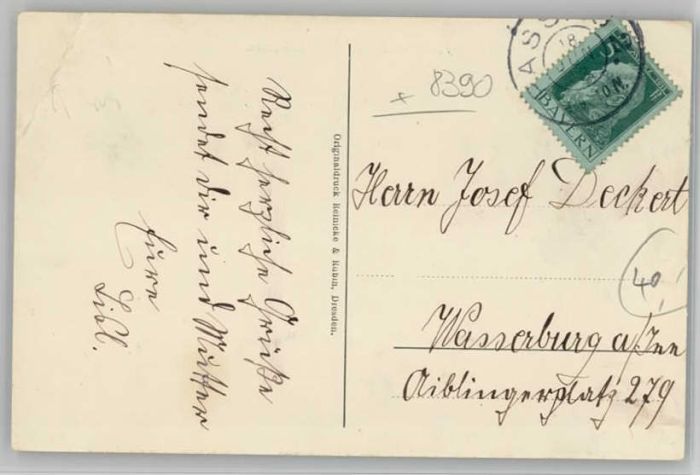 Recht herzliche Grüße
sendet dir und Mutter
Eure
Sisl.
Originaldruck Reinicke & Rubin, Dresden.
+ 8390
BAYERN
Herrn Josef Deckert
40
Wasserburg a/Inn
Aiblingerplatz 279